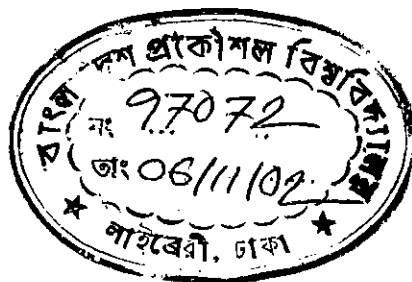 বাংলাদেশ প্রকৌশল বিশ্ববিদ্যালয়
নং 97072
তাং 06/11/02
লাইব্রেরী, ঢাকা